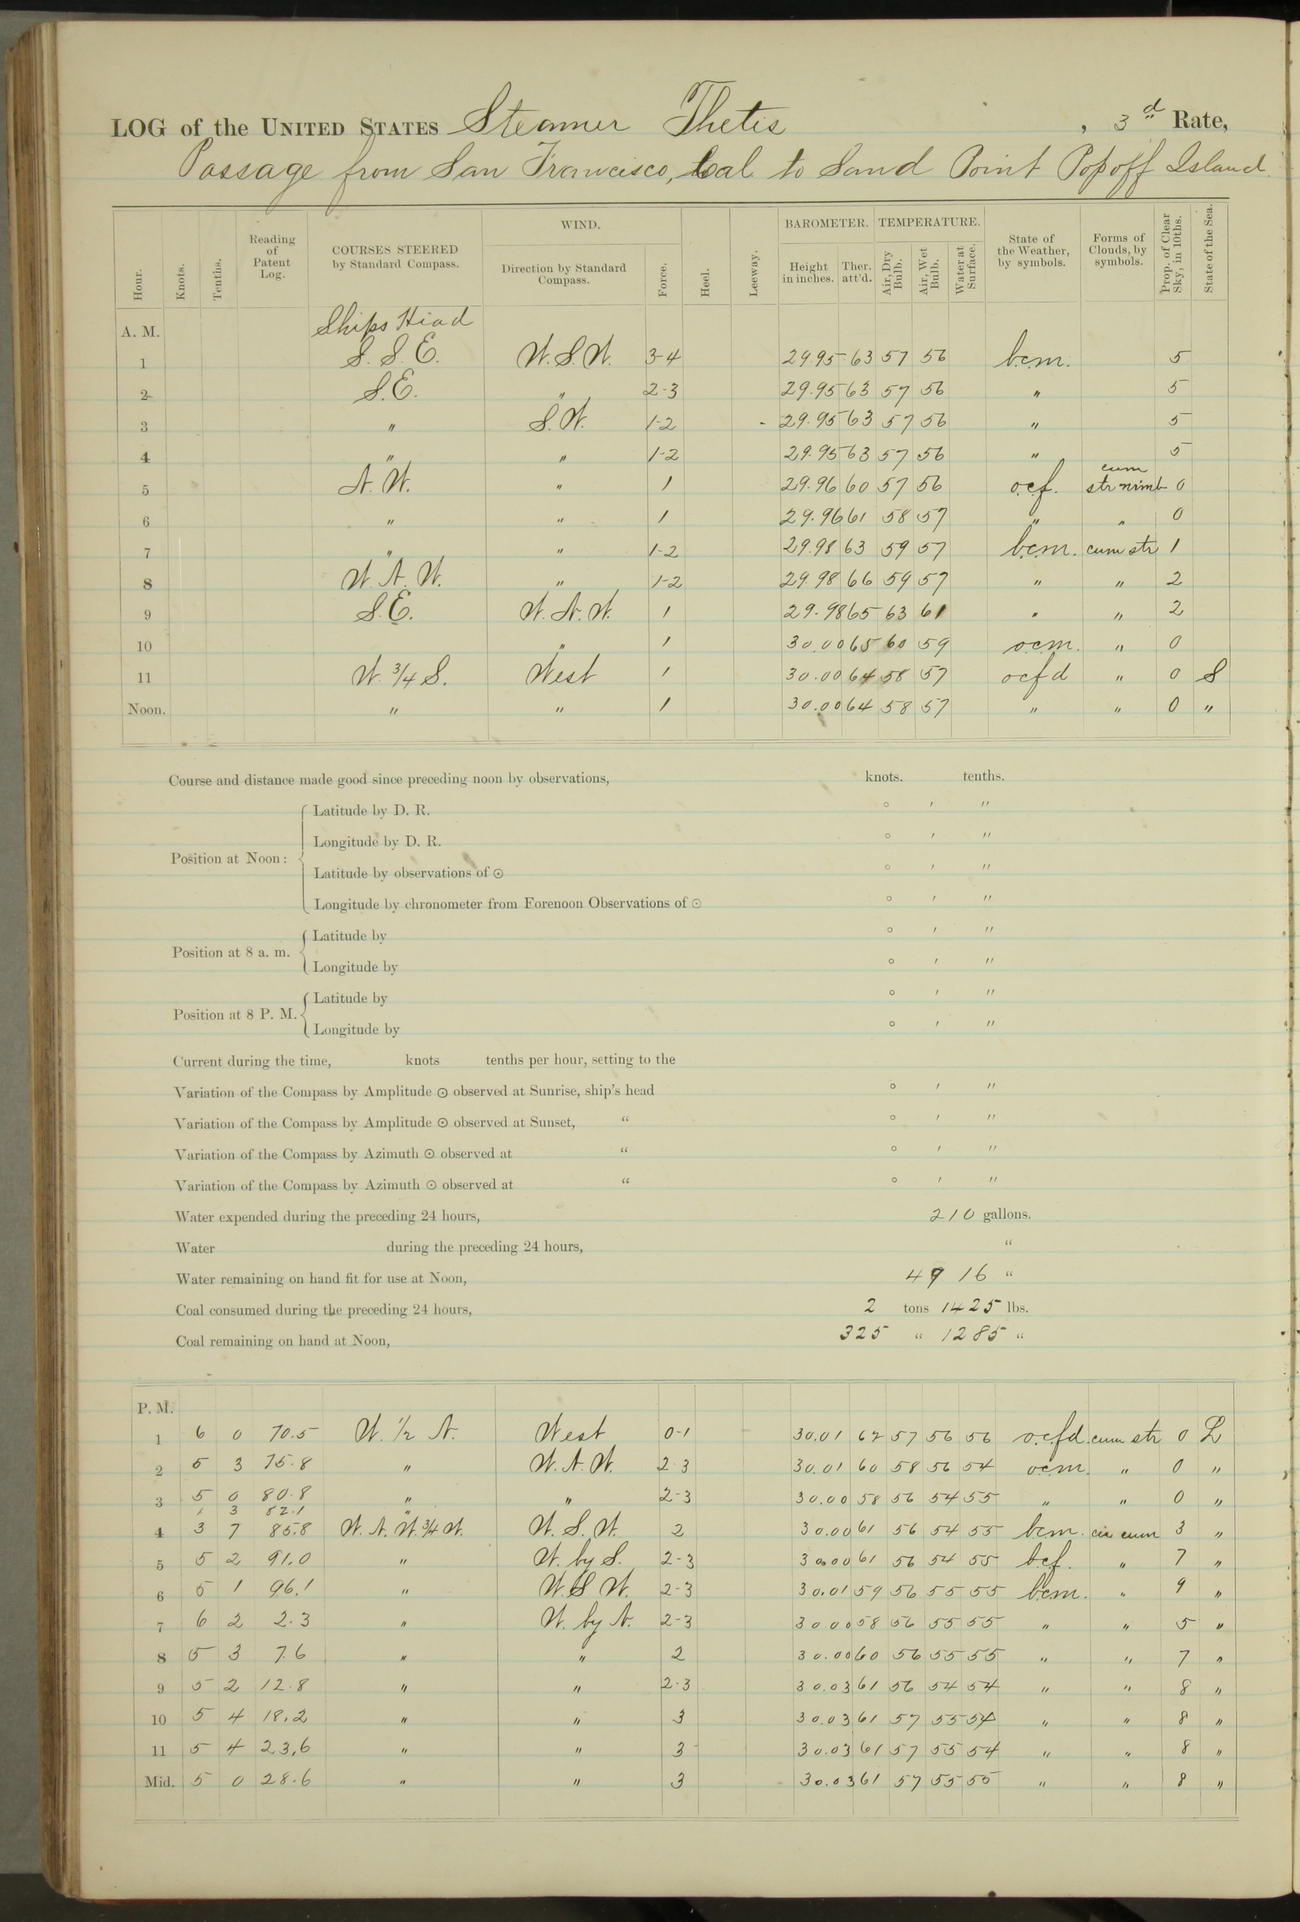 LOG of the UNITED STATES Steamer Thetis, 3d Rate,
Passage from San Francisco, Cal to Sand Point Popoff Island.
Hour. Knots. Tenths. Reading of Patent Log. COURSES STEERED by Standard Compass. WIND. Direction by Standard Compass. Force. Heel. Leeway. BAROMETER. Height in inches. Ther. att'd. TEMPERATURE. Air, Dry Bulb. Air, Wet Bulb. Water at Surface. State of the Weather, by symbols. Forms of Clouds, by symbols. Prop. of Clear Sky, in 10ths. State of the Sea.
A. M. Ships Head
1 S. S. E. W. S. W. 3-4 29.95 63 57 56 b.c.m. 5
2 S.E. " 2-3 29.95 63 57 56 " 5
3 " S. W. 1-2 29.95 63 57 56 " 5
4 " " 1-2 29.95 63 57 56 " 5
5 N. W. " 1 29.96 60 57 56 o.c.f. cum str nimb 0
6 " " 1 29.96 61 58 57 " " 0
7 " " 1-2 29.98 63 59 57 b.c.m. cum str 1
8 W. N. W. " 1-2 29.98 66 59 57 " " 2
9 S.E. W. N. W. 1 29.98 65 63 61 " " 2
10 " 1 30.00 65 60 59 o.c.m. " 0
11 W. 3/4 S. West 1 30.00 64 58 57 ocfd " 0 S
Noon. " " 1 30.00 64 58 57 " " 0 "
Course and distance made good since preceding noon by observations, knots. tenths.
Position at Noon: Latitude by D. R. ° ′ ″
Longitude by D. R. ° ′ ″
Latitude by observations of ⊙ ° ′ ″
Longitude by chronometer from Forenoon Observations of ⊙ ° ′ ″
Position at 8 a. m. Latitude by ° ′ ″
Longitude by ° ′ ″
Position at 8 P. M. Latitude by ° ′ ″
Longitude by ° ′ ″
Current during the time, knots tenths per hour, setting to the
Variation of the Compass by Amplitude ⊙ observed at Sunrise, ship's head ° ′ ″
Variation of the Compass by Amplitude ⊙ observed at Sunset, " ° ′ ″
Variation of the Compass by Azimuth ⊙ observed at " ° ′ ″
Variation of the Compass by Azimuth ⊙ observed at " ° ′ ″
Water expended during the preceding 24 hours, 210 gallons.
Water during the preceding 24 hours, "
Water remaining on hand fit for use at Noon, 4916 "
Coal consumed during the preceding 24 hours, 2 tons 1425 lbs.
Coal remaining on hand at Noon, 325 " 1285 "
P. M.
1 6 0 70.5 W. 1/2 N. West 0-1 30.01 62 57 56 56 o.c.f.d. cum str 0 L
2 5 3 75.8 " W. N. W. 2-3 30.01 60 58 56 54 o.c.m. " 0 "
3 5 0 80.8 " " 2-3 30.00 58 56 54 55 " " 0 "
1 3 82.1 "
4 3 7 85.8 W. N. W. 3/4 W. W. S. W. 2 30.00 61 56 54 55 bcm. cir cum 3 "
5 5 2 91.0 " W. by S. 2-3 30.00 61 56 54 55 b.c.f. " 7 "
6 5 1 96.1 " W. S. W. 2-3 30.01 59 56 55 55 b.c.m. " 9 "
7 6 2 2.3 " W. by N. 2-3 30.00 58 56 55 55 " " 5 "
8 5 3 7.6 " " 2 30.00 60 56 55 55 " " 7 "
9 5 2 12.8 " " 2-3 30.03 61 56 54 54 " " 8 "
10 5 4 18.2 " " 3 30.03 61 57 55 54 " " 8 "
11 5 4 23.6 " " 3 30.03 61 57 55 54 " " 8 "
Mid. 5 0 28.6 " " 3 30.03 61 57 55 55 " " 8 "